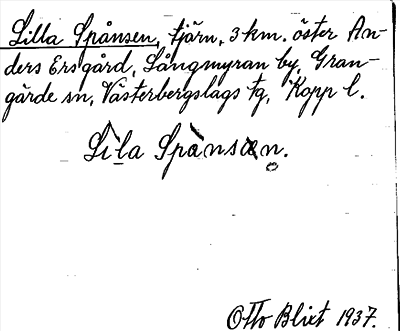 Lilla Spånsen, tjärn, 3 km. öster An-
ders Ersgård, Långmyran by, Gran-
gärde sn, Västerbergslags tg, Kopp l.
Lìla Spànsæn.
Otto Blixt 1937.